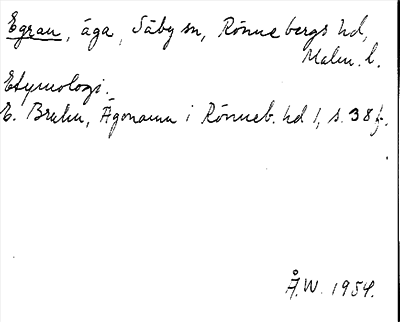 Egran, äga, Säby sn, Rönnebergs hd,
Malm. l.
Etymologi.
E. Bruhn, Ägonamn i Rönneb. hd 1, s. 38 f.
Å.W. 1954.